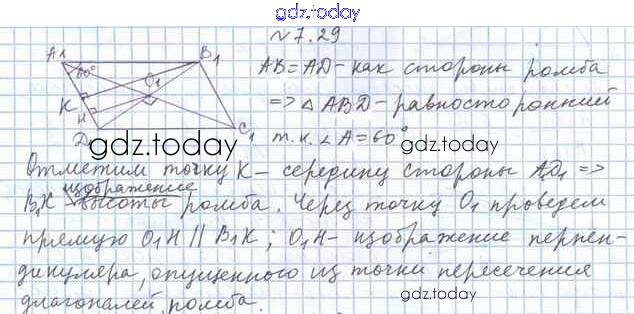 gdz.today
№ 7.29
A1 B1 60° O1 K H D1 C1
AB = AD - как стороны ромба
=> △ ABD - равносторонний
т.к. ∠A = 60°
gdz.today
Отметим точку К - середину стороны AD1 =>
изображение
B1K - высоты ромба. Через точку O1 проведем
прямую O1H || B1K; O1H - изображение перпен-
дикуляра, опущенного из точки пересечения
диагоналей ромба.
gdz.today